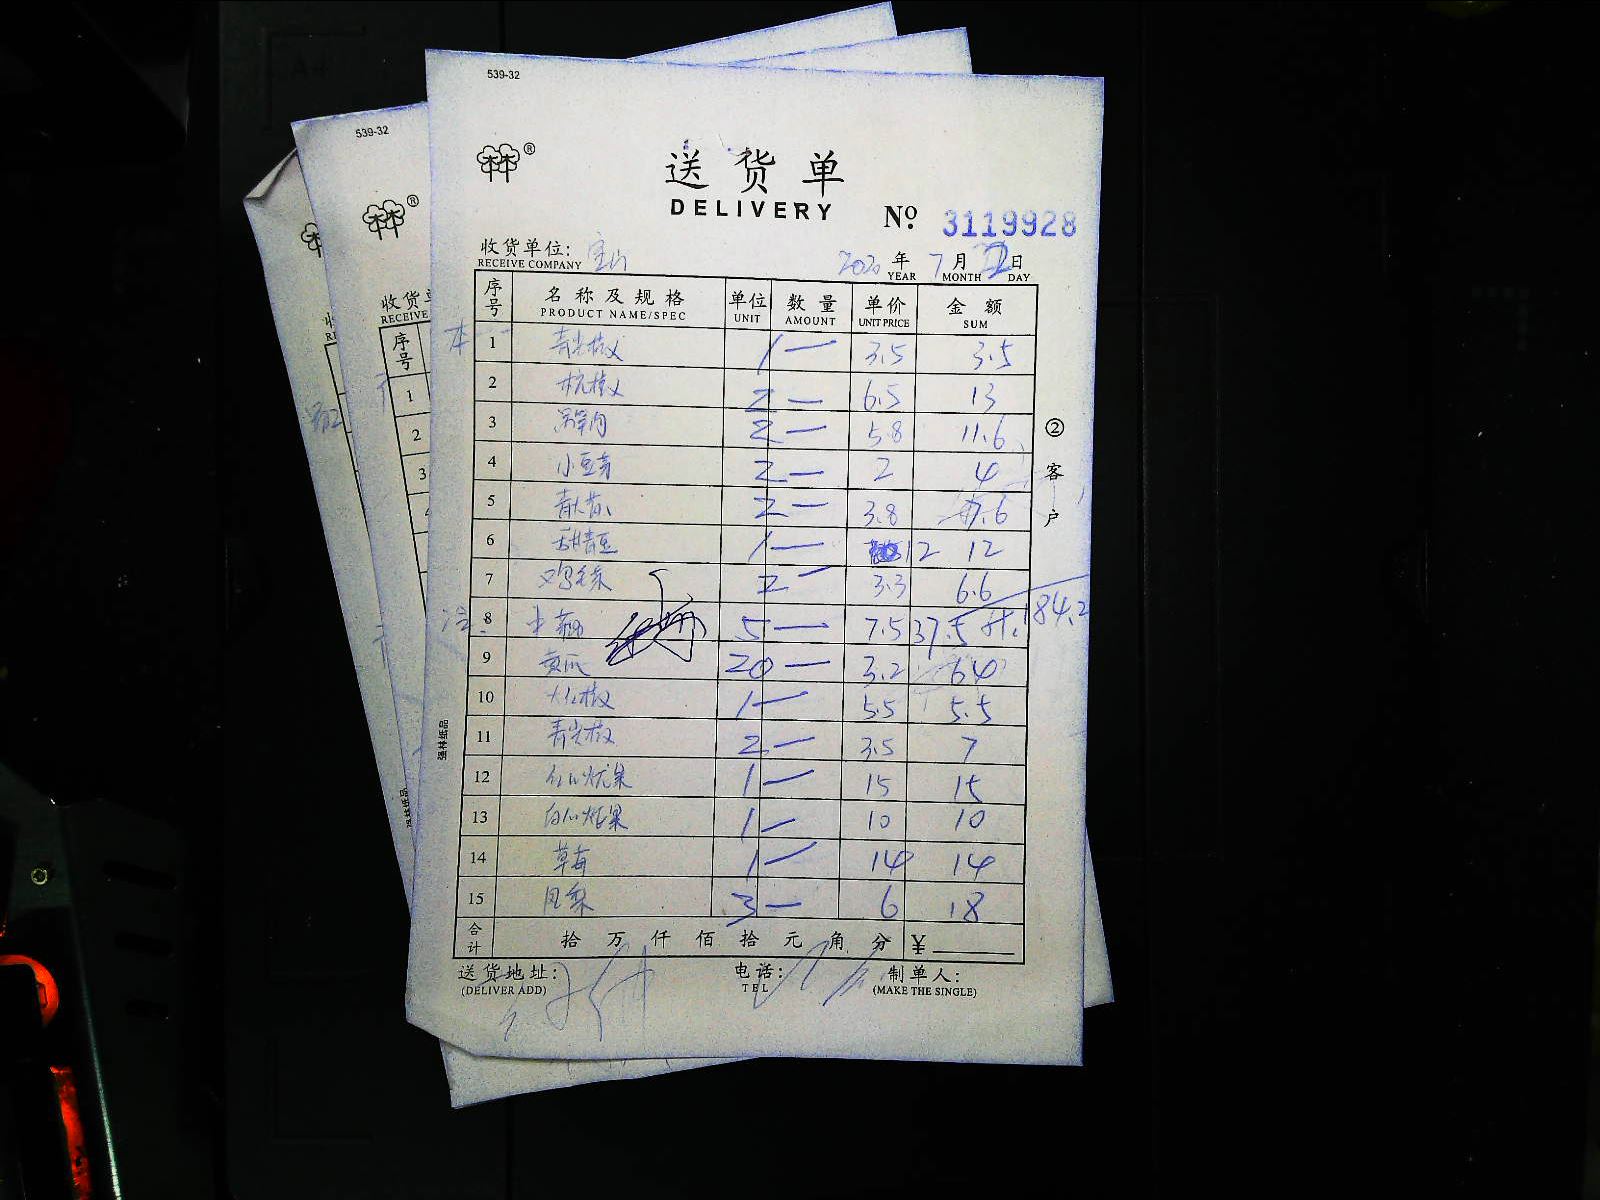 539-32
539-32
®
®
送货单
DELIVERY
Nº 3119928
收货单位: 宝山
RECEIVE COMPANY
2020 年 7 月 22 日
YEAR MONTH DAY
序号 名称及规格 单位 数量 单价 金额
PRODUCT NAME/SPEC UNIT AMOUNT UNIT PRICE SUM
1 青尖椒 1 一 3.5 3.5
2 杭椒 2 一 6.5 13
3 2 一 5.8 11.6
4 小豆芽 2 一 2 4
5 2 一 3.8 7.6
6 甜青豆 1 一 12 12
7 鸡毛菜 2 一 3.3 6.6
8 5 一 7.5 37.5 184.2
9 黄瓜 20 一 3.2 64
10 大红椒 1 一 5.5 5.5
11 青尖椒 2 一 3.5 7
12 红心火龙果 1 一 15 15
13 白心火龙果 1 一 10 10
14 草莓 1 一 14 14
15 凤梨 3 一 6 18
合计 拾 万 仟 佰 拾 元 角 分 ¥
送货地址: 电话: 制单人:
(DELIVER ADD) TEL (MAKE THE SINGLE)
② 客户
强林纸品
收货单
RECEIVE
序号
1
2
3
4